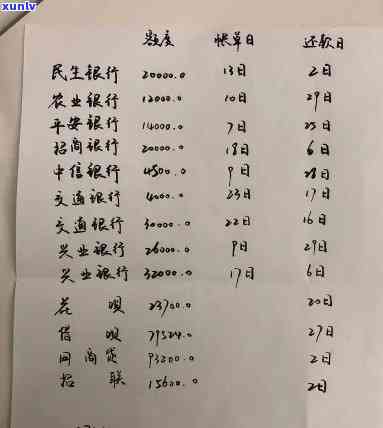 xunlv
额度 帐单日 还款日
民生银行 20000.0 13日 2日
农业银行 12000.0 10日 29日
平安银行 14000.0 7日 25日
招商银行 20000.0 18日 6日
中信银行 4500.0 9日 28日
交通银行 4000.0 23日 17日
交通银行 30000.0 22日 16日
兴业银行 26000.0 9日 29日
兴业银行 32000.0 17日 6日
花 呗 23700.0 20日
借 呗 79524.0 27日
网商贷 93200.0 2日
招 联 15600.0 2日